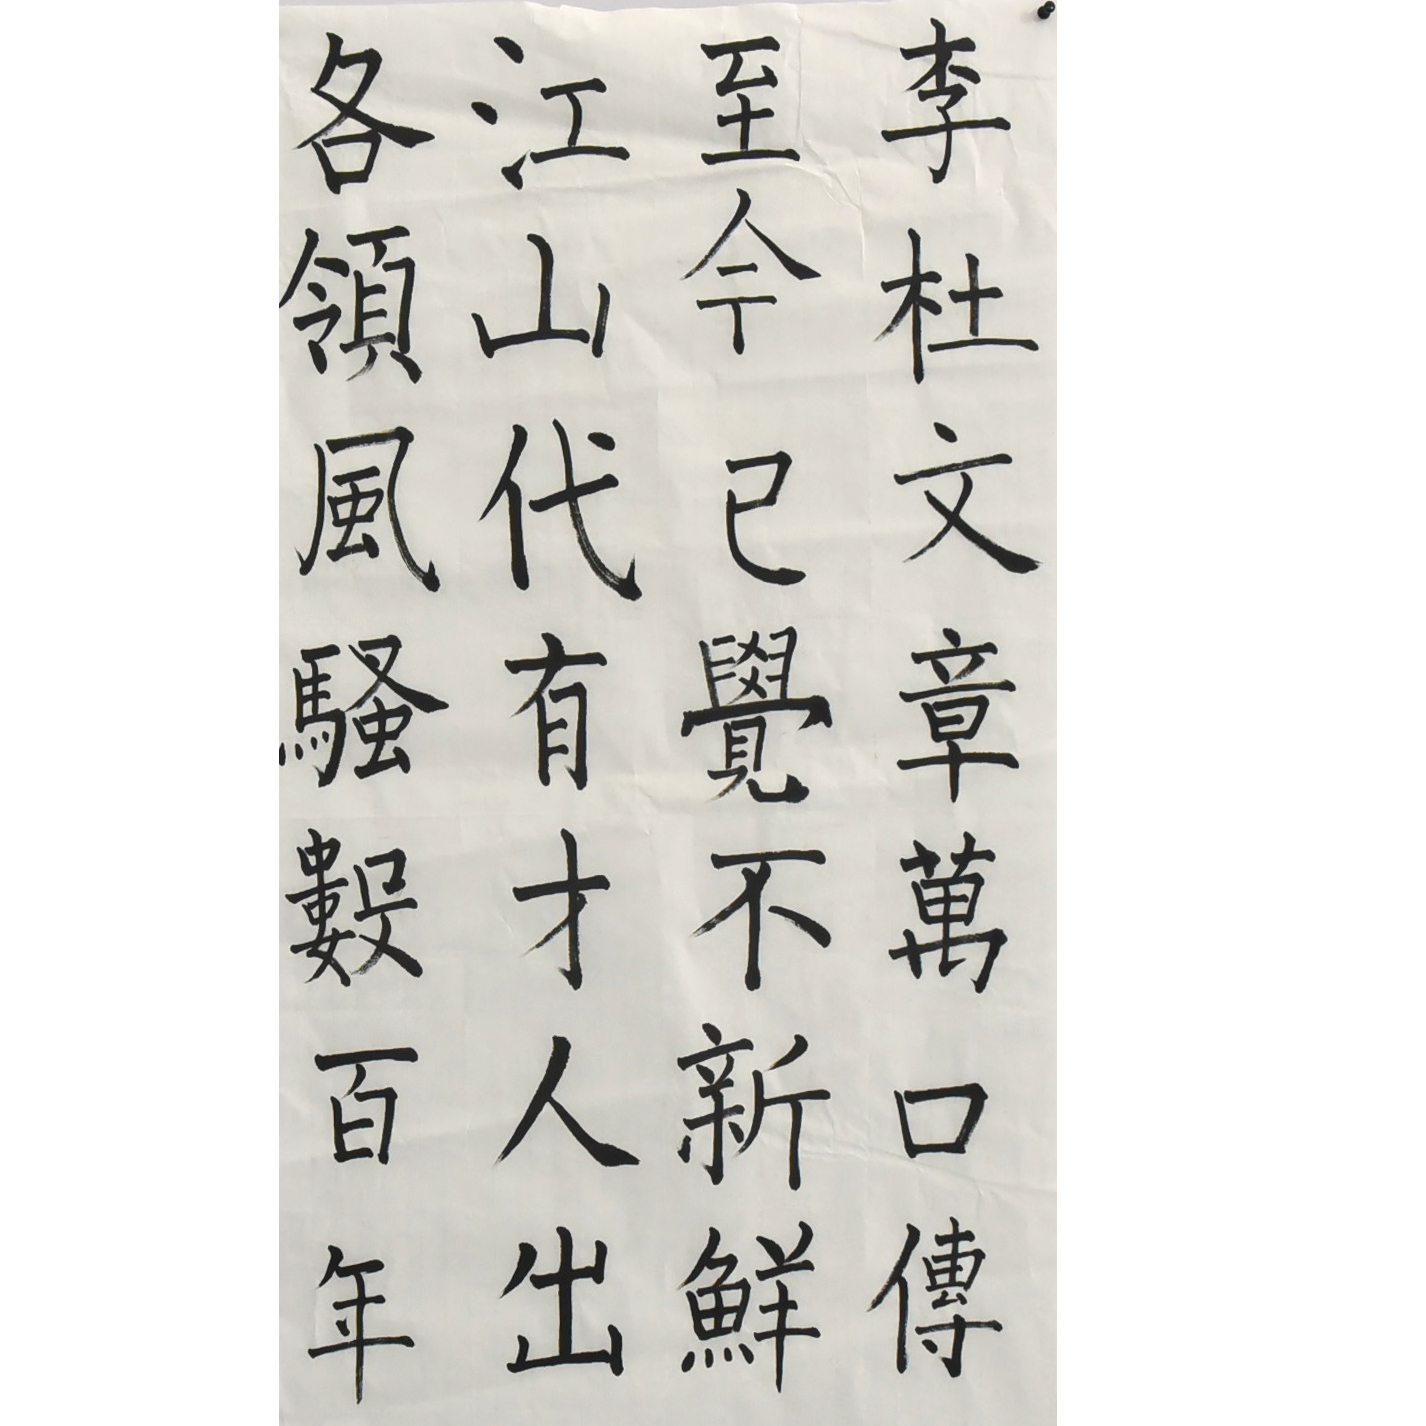 李杜文章萬口傳
至今已覺不新鮮
江山代有才人出
各領風騷數百年